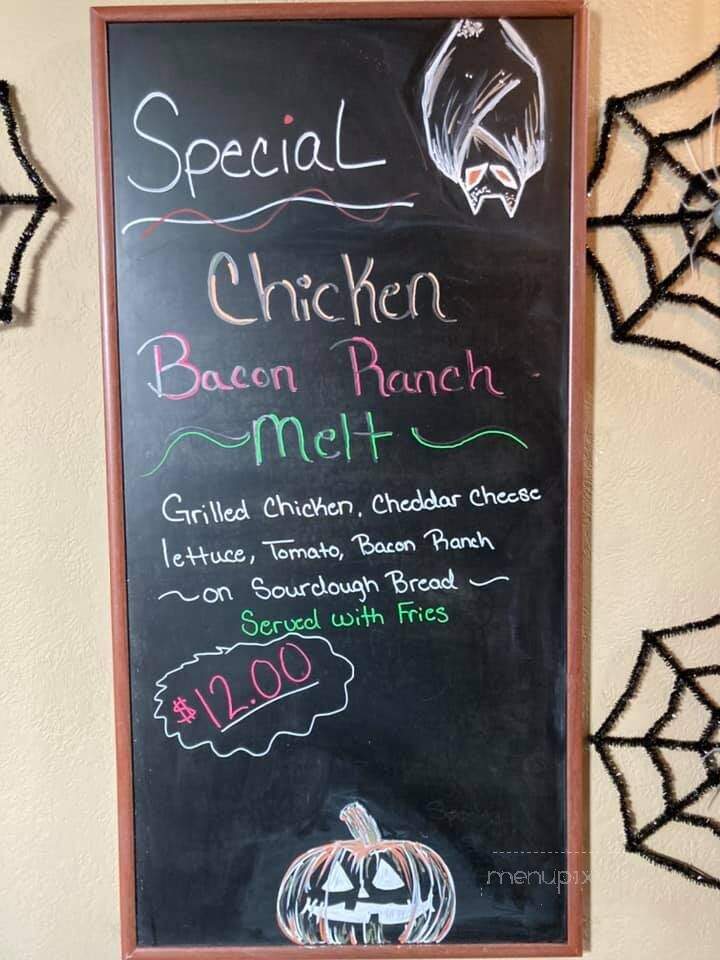 Special
Chicken
Bacon Ranch
Melt
Grilled Chicken, Cheddar Cheese
lettuce, Tomato, Bacon Ranch
~on Sourdough Bread~
Served with Fries
$12.00
menupix